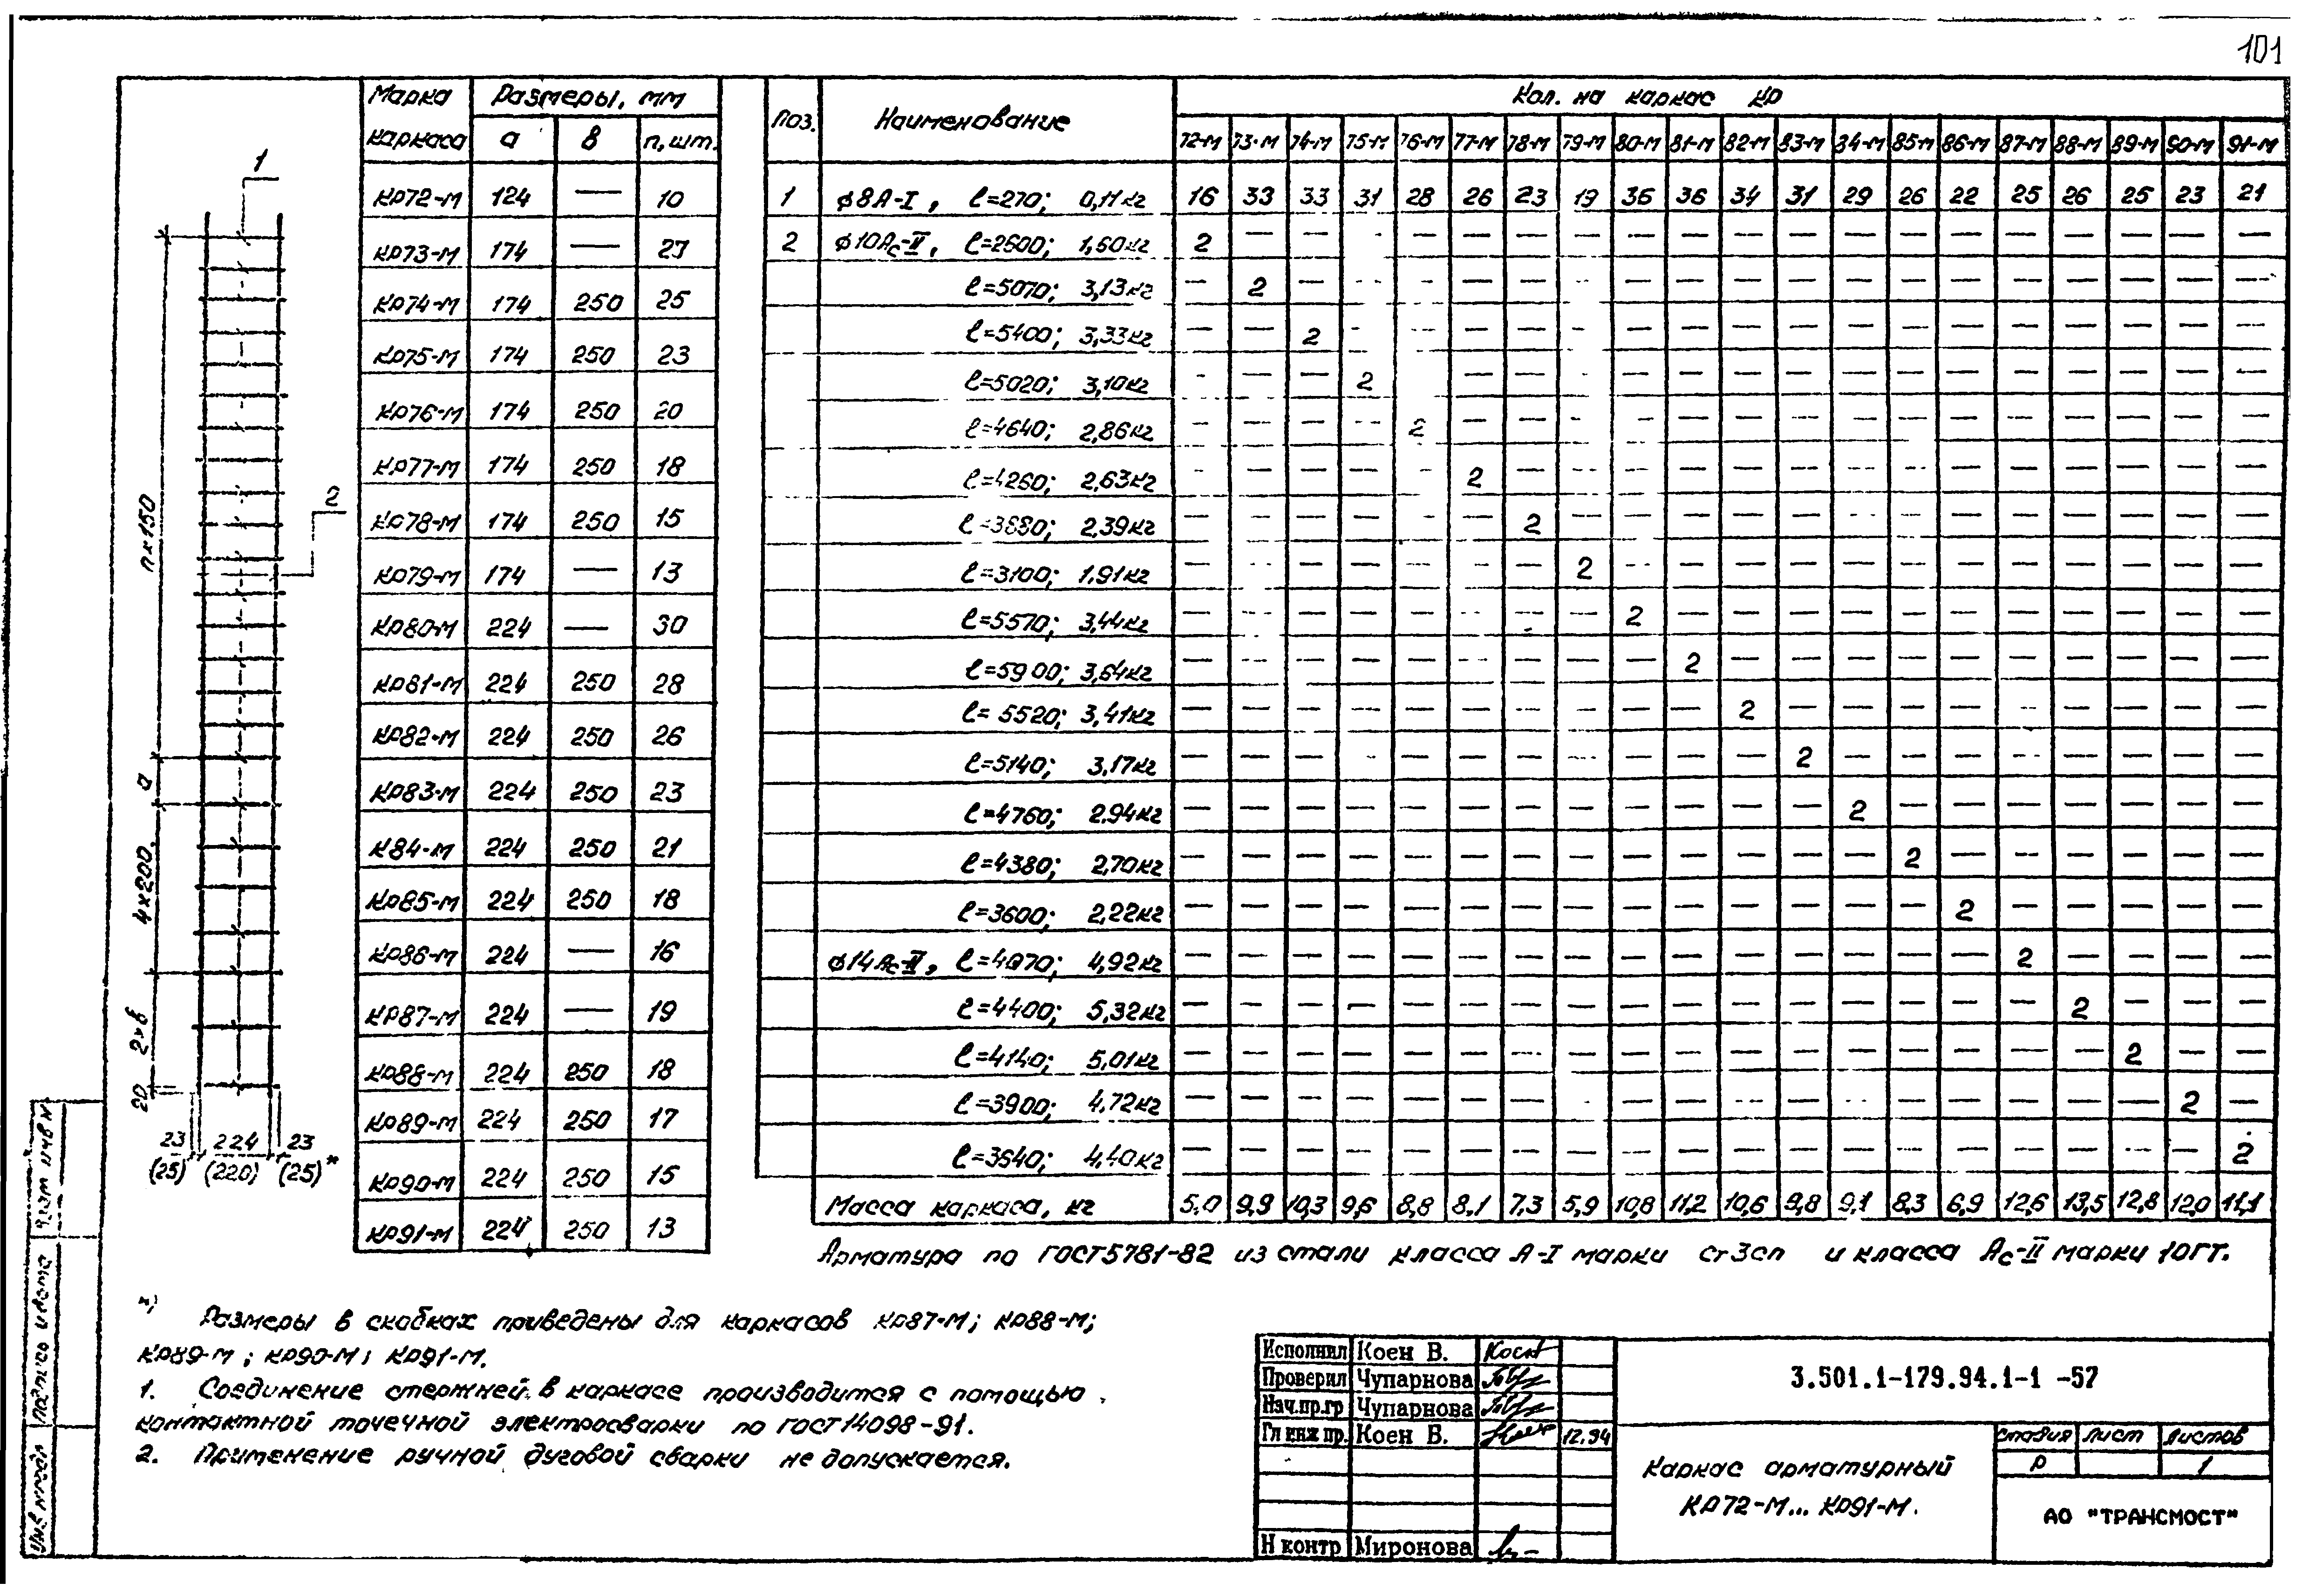 101
Марка каркаса | Размеры, мм
а | в | п, шт.
КР72-М | 124 | — | 10
КР73-М | 174 | — | 27
КР74-М | 174 | 250 | 25
КР75-М | 174 | 250 | 23
КР76-М | 174 | 250 | 20
КР77-М | 174 | 250 | 18
КР78-М | 174 | 250 | 15
КР79-М | 174 | — | 13
КР80-М | 224 | — | 30
КР81-М | 224 | 250 | 28
КР82-М | 224 | 250 | 26
КР83-М | 224 | 250 | 23
К84-М | 224 | 250 | 21
КР85-М | 224 | 250 | 18
КР86-М | 224 | — | 16
КР87-М | 224 | — | 19
КР88-М | 224 | 250 | 18
КР89-М | 224 | 250 | 17
КР90-М | 224 | 250 | 15
КР91-М | 224 | 250 | 13
1
2
п×150
а
4×200
2×в
20
23 224 23
(25) (220) (25)*
Поз. | Наименование | Кол. на каркас КР
72-М | 73-М | 74-М | 75-М | 76-М | 77-М | 78-М | 79-М | 80-М | 81-М | 82-М | 83-М | 84-М | 85-М | 86-М | 87-М | 88-М | 89-М | 90-М | 91-М
1 | ⌀8А-I, ℓ=270; 0,11кг | 16 | 33 | 33 | 31 | 28 | 26 | 23 | 19 | 36 | 36 | 34 | 31 | 29 | 26 | 22 | 25 | 26 | 25 | 23 | 21
2 | ⌀10Ас-II, ℓ=2600; 1,60кг | 2 | — | — | — | — | — | — | — | — | — | — | — | — | — | — | — | — | — | — | —
ℓ=5070; 3,13кг | — | 2 | — | — | — | — | — | — | — | — | — | — | — | — | — | — | — | — | — | —
ℓ=5400; 3,33кг | — | — | 2 | — | — | — | — | — | — | — | — | — | — | — | — | — | — | — | — | —
ℓ=5020; 3,10кг | — | — | — | 2 | — | — | — | — | — | — | — | — | — | — | — | — | — | — | — | —
ℓ=4640; 2,86кг | — | — | — | — | 2 | — | — | — | — | — | — | — | — | — | — | — | — | — | — | —
ℓ=4260; 2,63кг | — | — | — | — | — | 2 | — | — | — | — | — | — | — | — | — | — | — | — | — | —
ℓ=3880; 2,39кг | — | — | — | — | — | — | 2 | — | — | — | — | — | — | — | — | — | — | — | — | —
ℓ=3100; 1,91кг | — | — | — | — | — | — | — | 2 | — | — | — | — | — | — | — | — | — | — | — | —
ℓ=5570; 3,44кг | — | — | — | — | — | — | — | — | 2 | — | — | — | — | — | — | — | — | — | — | —
ℓ=5900; 3,64кг | — | — | — | — | — | — | — | — | — | 2 | — | — | — | — | — | — | — | — | — | —
ℓ=5520; 3,41кг | — | — | — | — | — | — | — | — | — | — | 2 | — | — | — | — | — | — | — | — | —
ℓ=5140; 3,17кг | — | — | — | — | — | — | — | — | — | — | — | 2 | — | — | — | — | — | — | — | —
ℓ=4760; 2,94кг | — | — | — | — | — | — | — | — | — | — | — | — | 2 | — | — | — | — | — | — | —
ℓ=4380; 2,70кг | — | — | — | — | — | — | — | — | — | — | — | — | — | 2 | — | — | — | — | — | —
ℓ=3600; 2,22кг | — | — | — | — | — | — | — | — | — | — | — | — | — | — | 2 | — | — | — | — | —
⌀14Ас-II, ℓ=4070; 4,92кг | — | — | — | — | — | — | — | — | — | — | — | — | — | — | — | 2 | — | — | — | —
ℓ=4400; 5,32кг | — | — | — | — | — | — | — | — | — | — | — | — | — | — | — | — | 2 | — | — | —
ℓ=4140; 5,01кг | — | — | — | — | — | — | — | — | — | — | — | — | — | — | — | — | — | 2 | — | —
ℓ=3900; 4,72кг | — | — | — | — | — | — | — | — | — | — | — | — | — | — | — | — | — | — | 2 | —
ℓ=3640; 4,40кг | — | — | — | — | — | — | — | — | — | — | — | — | — | — | — | — | — | — | — | 2
Масса каркаса, кг | 5,0 | 9,9 | 10,3 | 9,6 | 8,8 | 8,1 | 7,3 | 5,9 | 10,8 | 11,2 | 10,6 | 9,8 | 9,1 | 8,3 | 6,9 | 12,6 | 13,5 | 12,8 | 12,0 | 11,1
Арматура по ГОСТ5781-82 из стали класса А-I марки Ст3сп и класса Ас-II марки 10ГТ.
*) Размеры в скобках приведены для каркасов КР87-М; КР88-М;
КР89-М; КР90-М; КР91-М.
1. Соединение стержней в каркасе производится с помощью
контактной точечной электросварки по ГОСТ14098-91.
2. Применение ручной дуговой сварки не допускается.
Исполнил Коен В.
Проверил Чупарнова
Нач.пр.гр Чупарнова
Гл инж пр. Коен В. 12.94
Н контр Миронова
3.501.1-179.94.1-1 -57
Каркас арматурный
КР72-М... КР91-М.
Стадия | Лист | Листов
Р | | 1
АО "ТРАНСМОСТ"
Инв N подл
Подпись и дата
Взам инв N